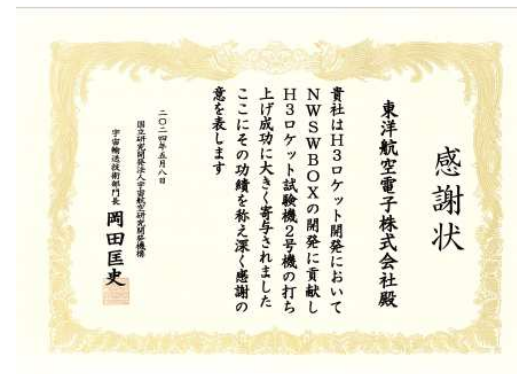 感謝状
東洋航空電子株式会社殿
貴社はH3ロケット開発において
NWSWBOXの開発に貢献し
H3ロケット試験機2号機の打ち
上げ成功に大きく寄与されました
ここにその功績を称え深く感謝の
意を表します
二〇二四年五月八日
国立研究開発法人宇宙航空研究開発機構
宇宙輸送技術部門長 岡田匡史